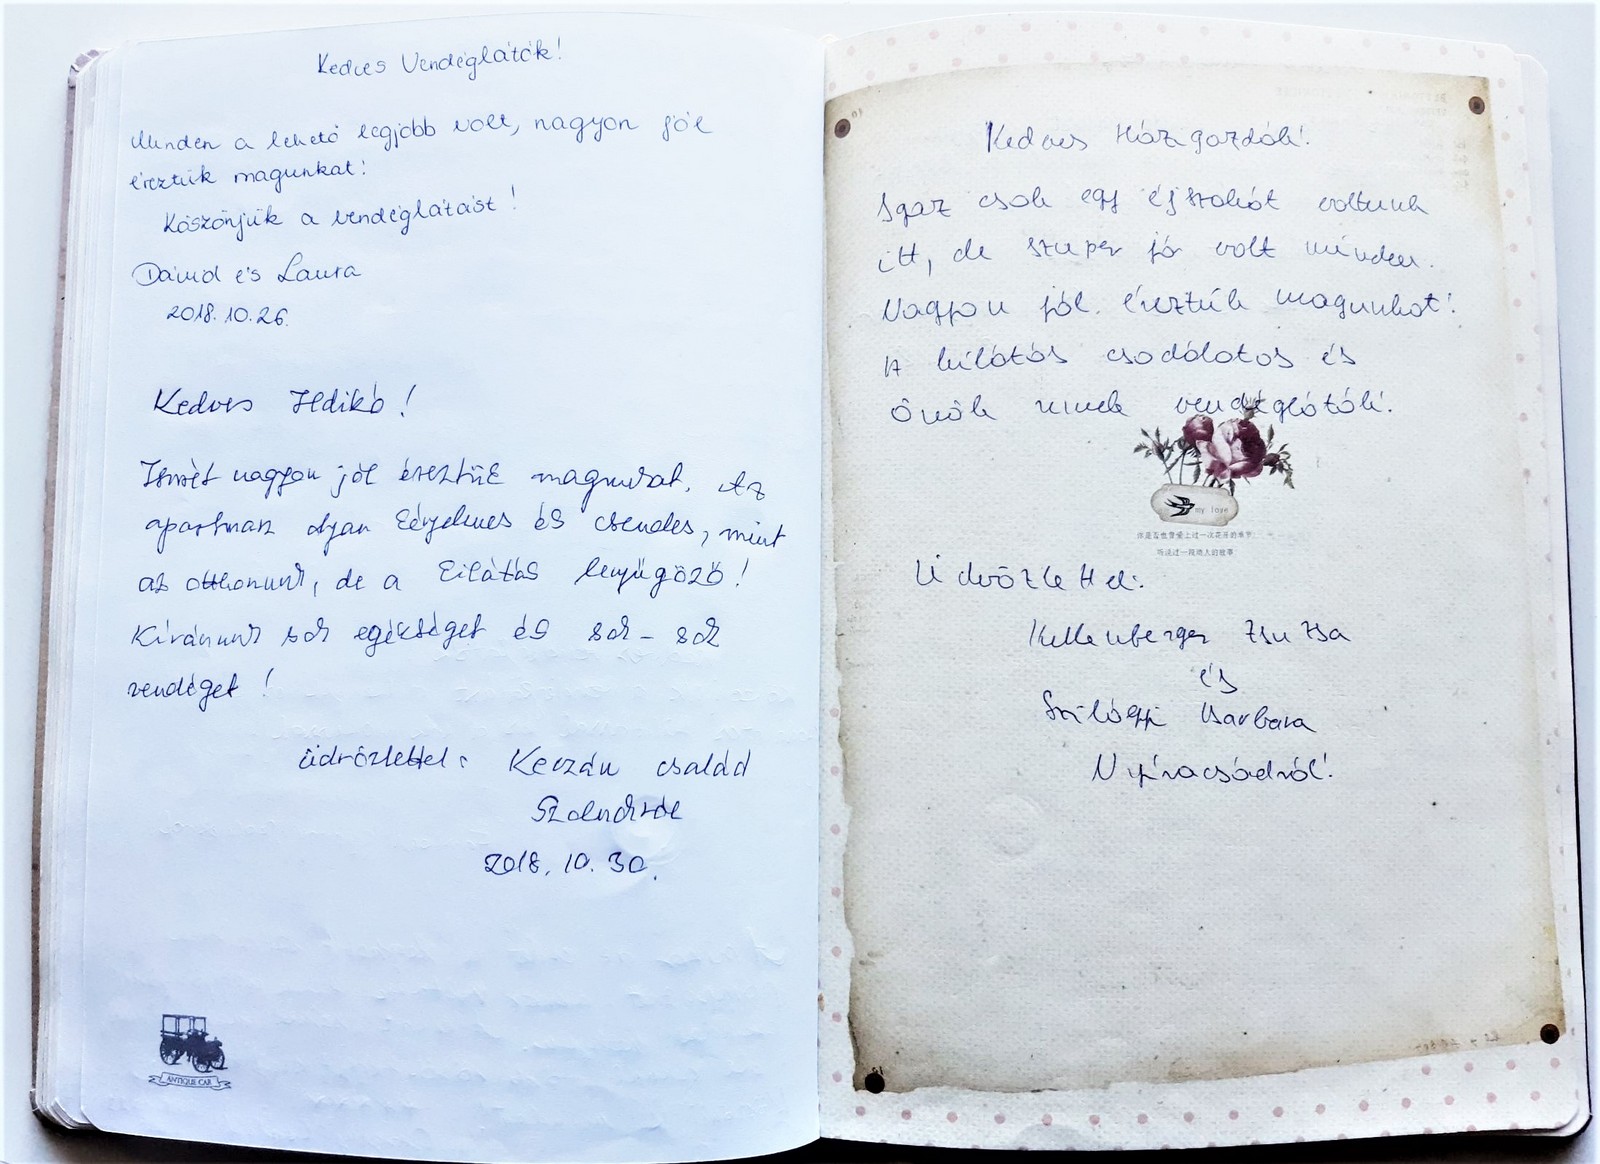 Kedves Vendéglátók!
Minden a lehető legjobb volt, nagyon jól
éreztük magunkat!
Köszönjük a vendéglátást!
Dávid és Laura
2018.10.26.
Kedves Ildikó!
Ismét nagyon jól éreztük magunkat. Az
apartman olyan kényelmes és csendes, mint
az otthonunk, de a kilátás lenyűgöző!
Kívánunk sok egészséget és sok-sok
vendéget!
üdvözlettel: Kerzán család
2018.10.30.
ANTIQUE CAR
Kedves Házigazdák!
Igaz csak egy éjszakát voltunk
itt, de szuper jó volt minden.
Nagyon jól éreztük magunkat!
A kilátás csodálatos és
Önök remek vendéglátók!
my love
Üdvözlettel:
Kellenberger Zsuzsa
és
Szilágyi Barbara
Nyíracsádról!